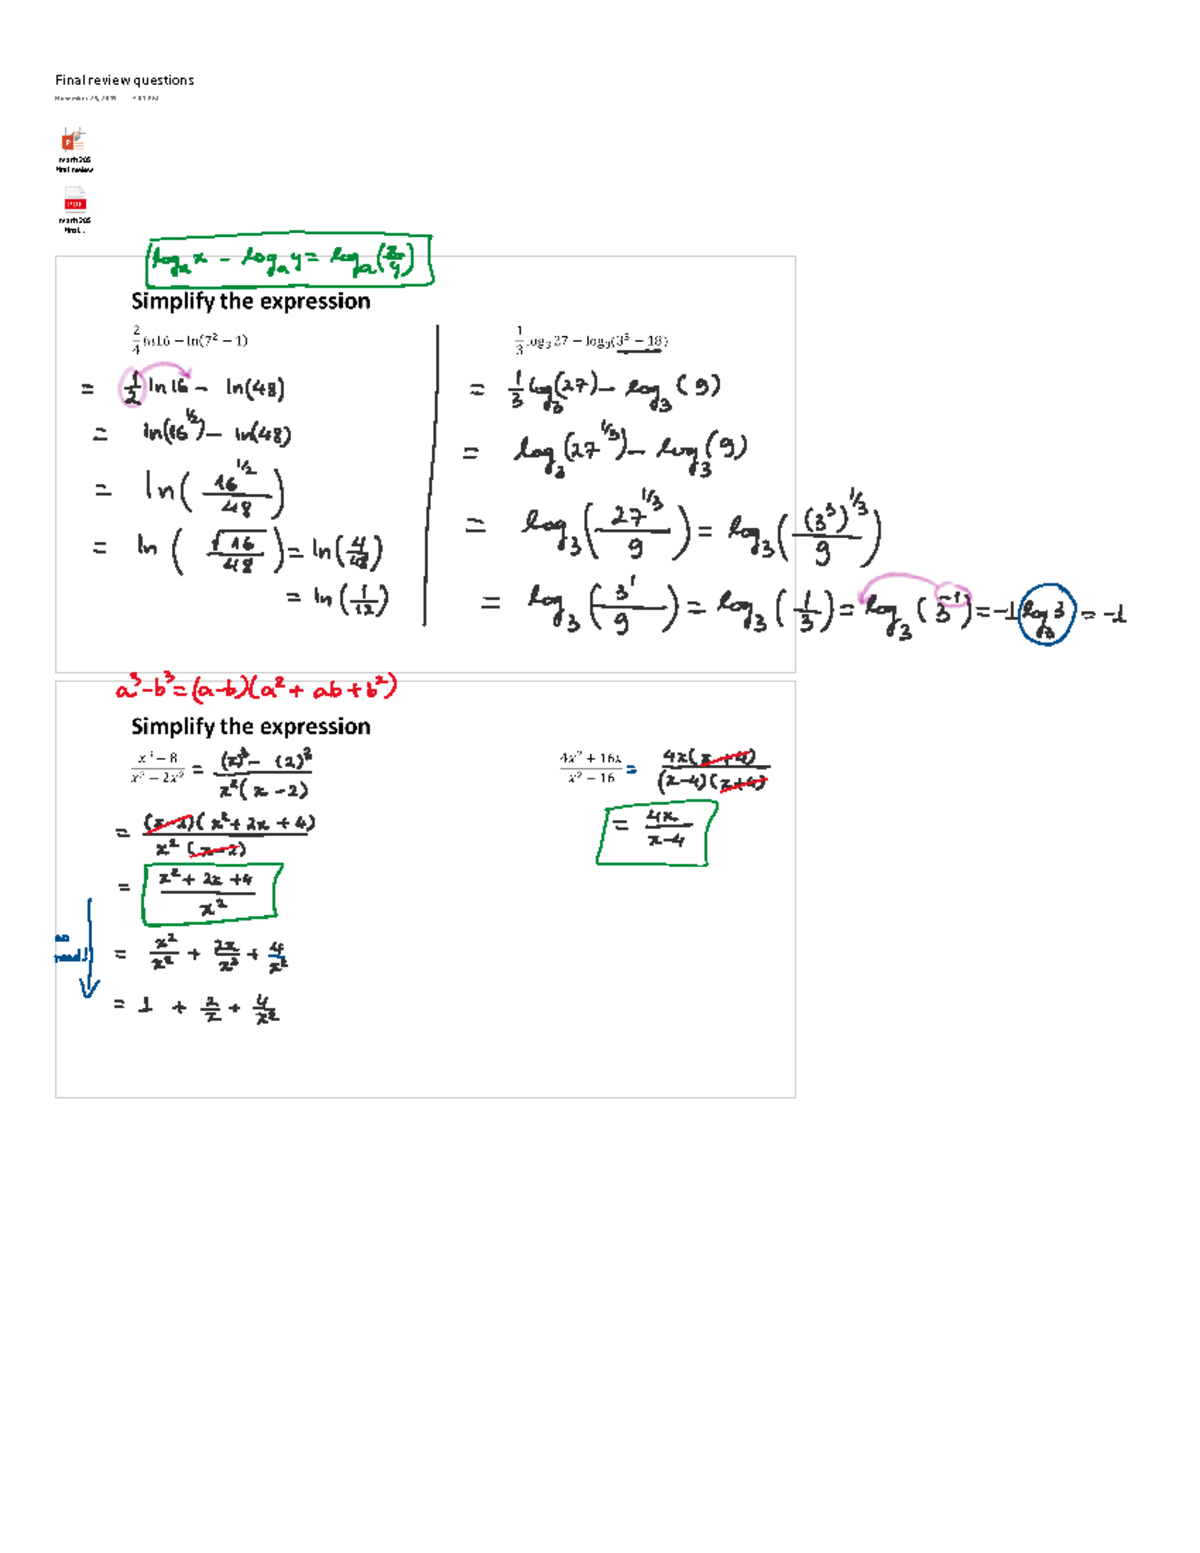 Final review questions
PDF
logₐx − logₐy = logₐ(x/y)
Simplify the expression
2/4 ln16 − ln(7² − 1)
= 1/2 ln16 − ln(48)
= ln(16^1/2) − ln(48)
= ln(16^1/2 / 48)
= ln(√16 / 48) = ln(4/48)
= ln(1/12)
1/3 log₃27 − log₃(3³ − 18)
= 1/3 log₃(27) − log₃(9)
= log₃(27^1/3) − log₃(9)
= log₃(27^1/3 / 9) = log₃((3³)^1/3 / 9)
= log₃(3¹ / 9) = log₃(1/3) = log₃(3⁻¹) = −1 log₃3 = −1
a³−b³=(a−b)(a² + ab + b²)
Simplify the expression
(x³ − 8)/(x³ − 2x²) = ((x)³ − (2)³)/(x²(x − 2))
= (x−2)(x² + 2x + 4)/(x²(x−2))
= (x² + 2x + 4)/x²
= x²/x² + 2x/x² + 4/x²
= 1 + 2/x + 4/x²
(4x² + 16x)/(x² − 16) = 4x(x + 4)/((x−4)(x+4))
= 4x/(x−4)